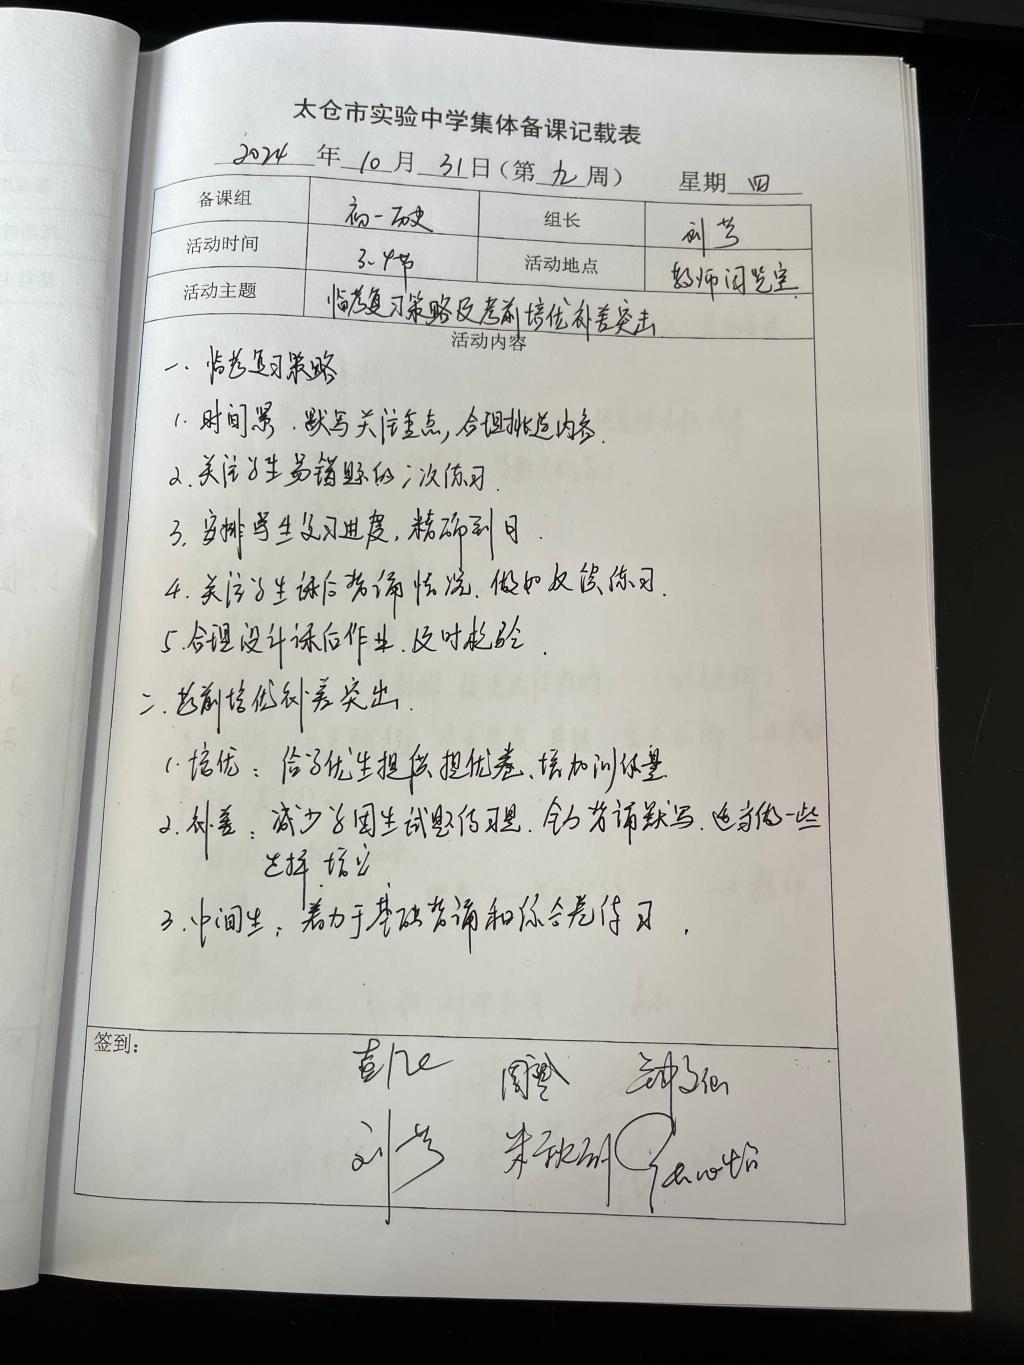 太仓市实验中学集体备课记载表
2024 年 10 月 31 日（第 九 周） 星期 四
备课组 初一历史 组长 刘芳
活动时间 3-4节 活动地点 教师阅览室
活动主题 临考复习策略及考前培优补差突击
活动内容
一、临考复习策略
1. 时间紧、默写关注重点，合理挑选内容.
2. 关注学生易错题的二次练习.
3. 安排学生复习进度，精确到日.
4. 关注学生课后背诵情况、做好反馈练习.
5. 合理设计课后作业、及时检验.
二、考前培优补差突出.
1. 培优：给予优生提供提优卷、增加训练量.
2. 补差：减少学困生试题练习量、背诵默写、适当做一些
选择填空
3. 中间生：着力于基础背诵和综合卷练习.
签到：
刘芳